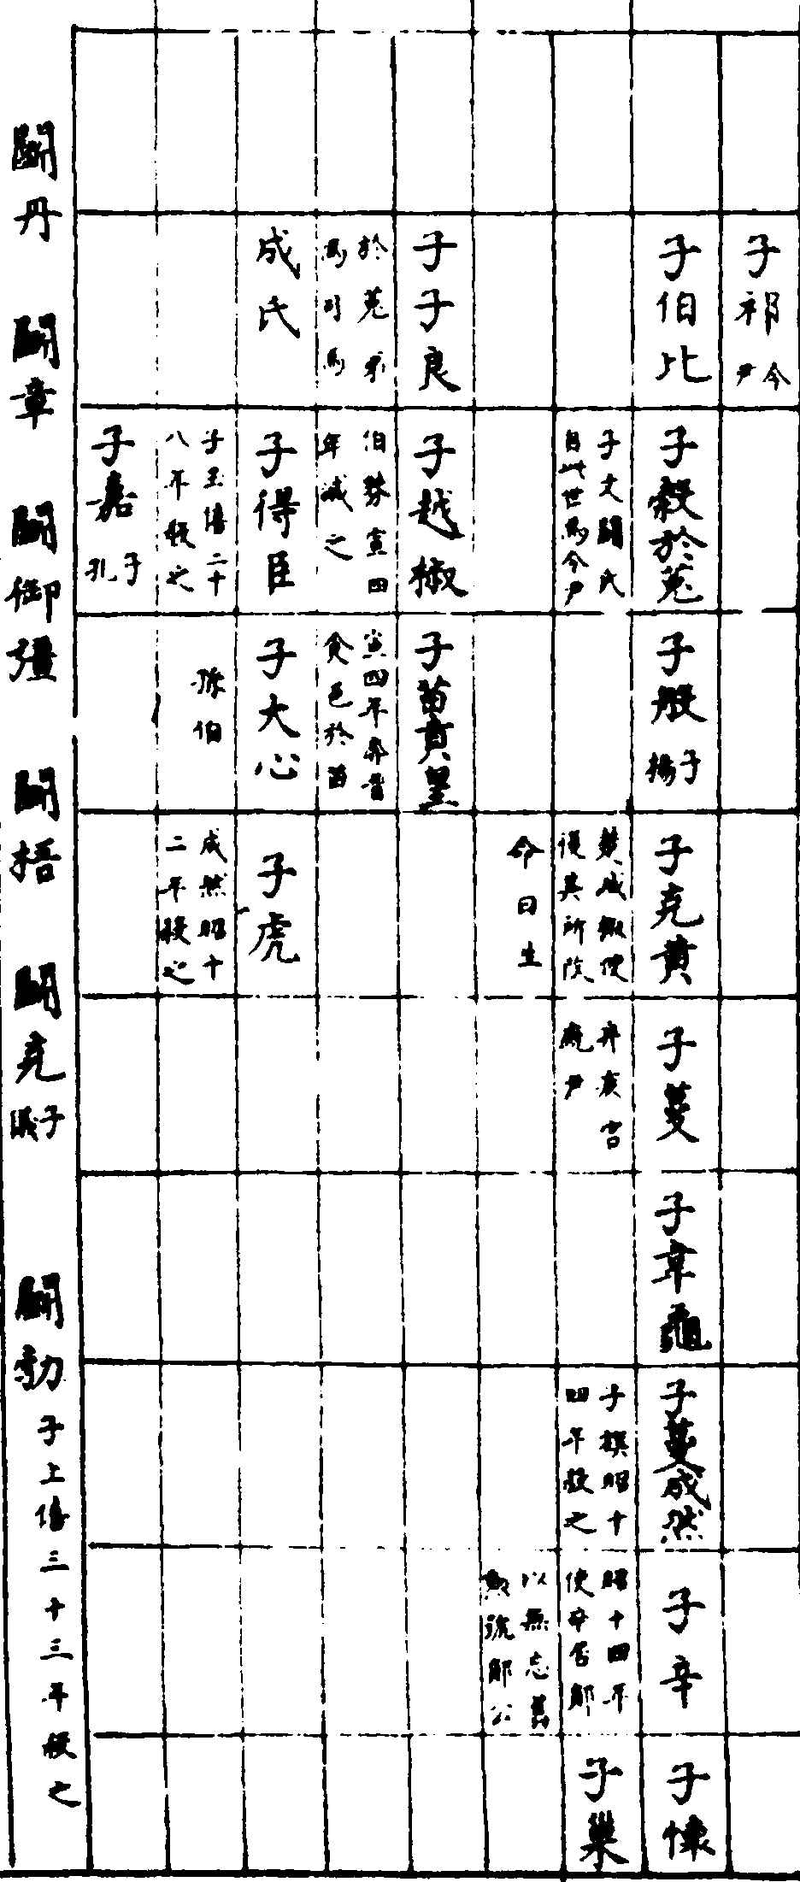 子祁 令尹
子伯比
子穀於菟
子文鬭氏
自此世為令尹
子般 子揚
子克黃
楚滅後使
復其所改
命曰生
子蔓
弃疾
尹
子韋龜
子蔓成然
子旗昭十
四年殺之
子辛
昭十四年
使辛居鄖
以無忘舊
勲號鄖公
子懷
子巢
子子良
於菟弟
為司馬
子越椒
伯棼宣四
年滅之
子苗賁皇
宣四年奔晉
食邑於苗
成氏
子得臣
子玉僖二十
八年殺之
子大心
孫伯
子虎
成然昭十
二年殺之
子嘉 子孔
鬭丹 鬭章 鬭御彊 鬭梧 鬭克 子儀 鬭勃 子上僖三十三年殺之